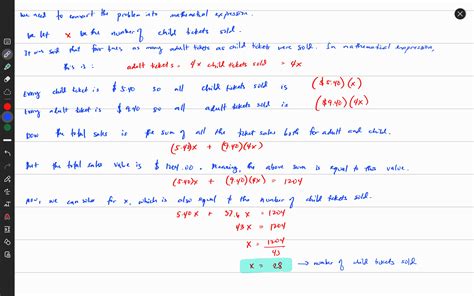 We need to convert the problem into mathematical expression.
So let x be the number of child tickets sold.
It was said that four times as many adult tickets as child tickets were sold. In mathematical expression,
this is: adult tickets = 4x child tickets sold = 4x
Every child ticket is $5.40 so all child tickets sold is ($5.40)(x)
Every adult ticket is $9.40 so all adult tickets sold is ($9.40)(4x)
Now the total sales is the sum of all the ticket sales both for adult and child.
(5.40)x + (9.40)(4x)
But the total sales value is $1204.00. Meaning, the above sum is equal to this value.
(5.40)x + (9.40)(4x) = 1204
Now, we can solve for x, which is also equal to the number of child tickets sold.
5.40x + 37.6x = 1204
43x = 1204
x = 1204
43
x = 28 → number of child tickets sold